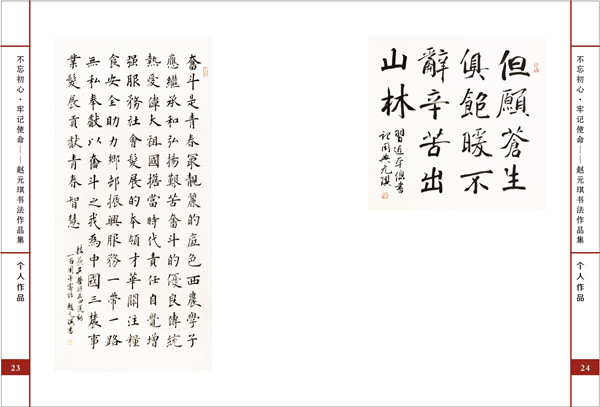 不忘初心·牢记使命——赵元琪书法作品集
个人作品
23
奮斗是青春最靚麗的底色西農學子
應繼承和弘揚艱苦奮斗的優良傳統
熱愛偉大祖國擔當時代責任自覺增
强服務社會發展的本領才華關注糧
食安全助力鄉邨振興服務一帶一路
無私奉獻以奮斗之我為中國三農事
業發展貢獻青春智慧
五四運動
一百周年寄語 趙元琪書
但願蒼生
俱飽暖不
辭辛苦出
山林
習近平總書
記用典元琪
不忘初心·牢记使命——赵元琪书法作品集
个人作品
24